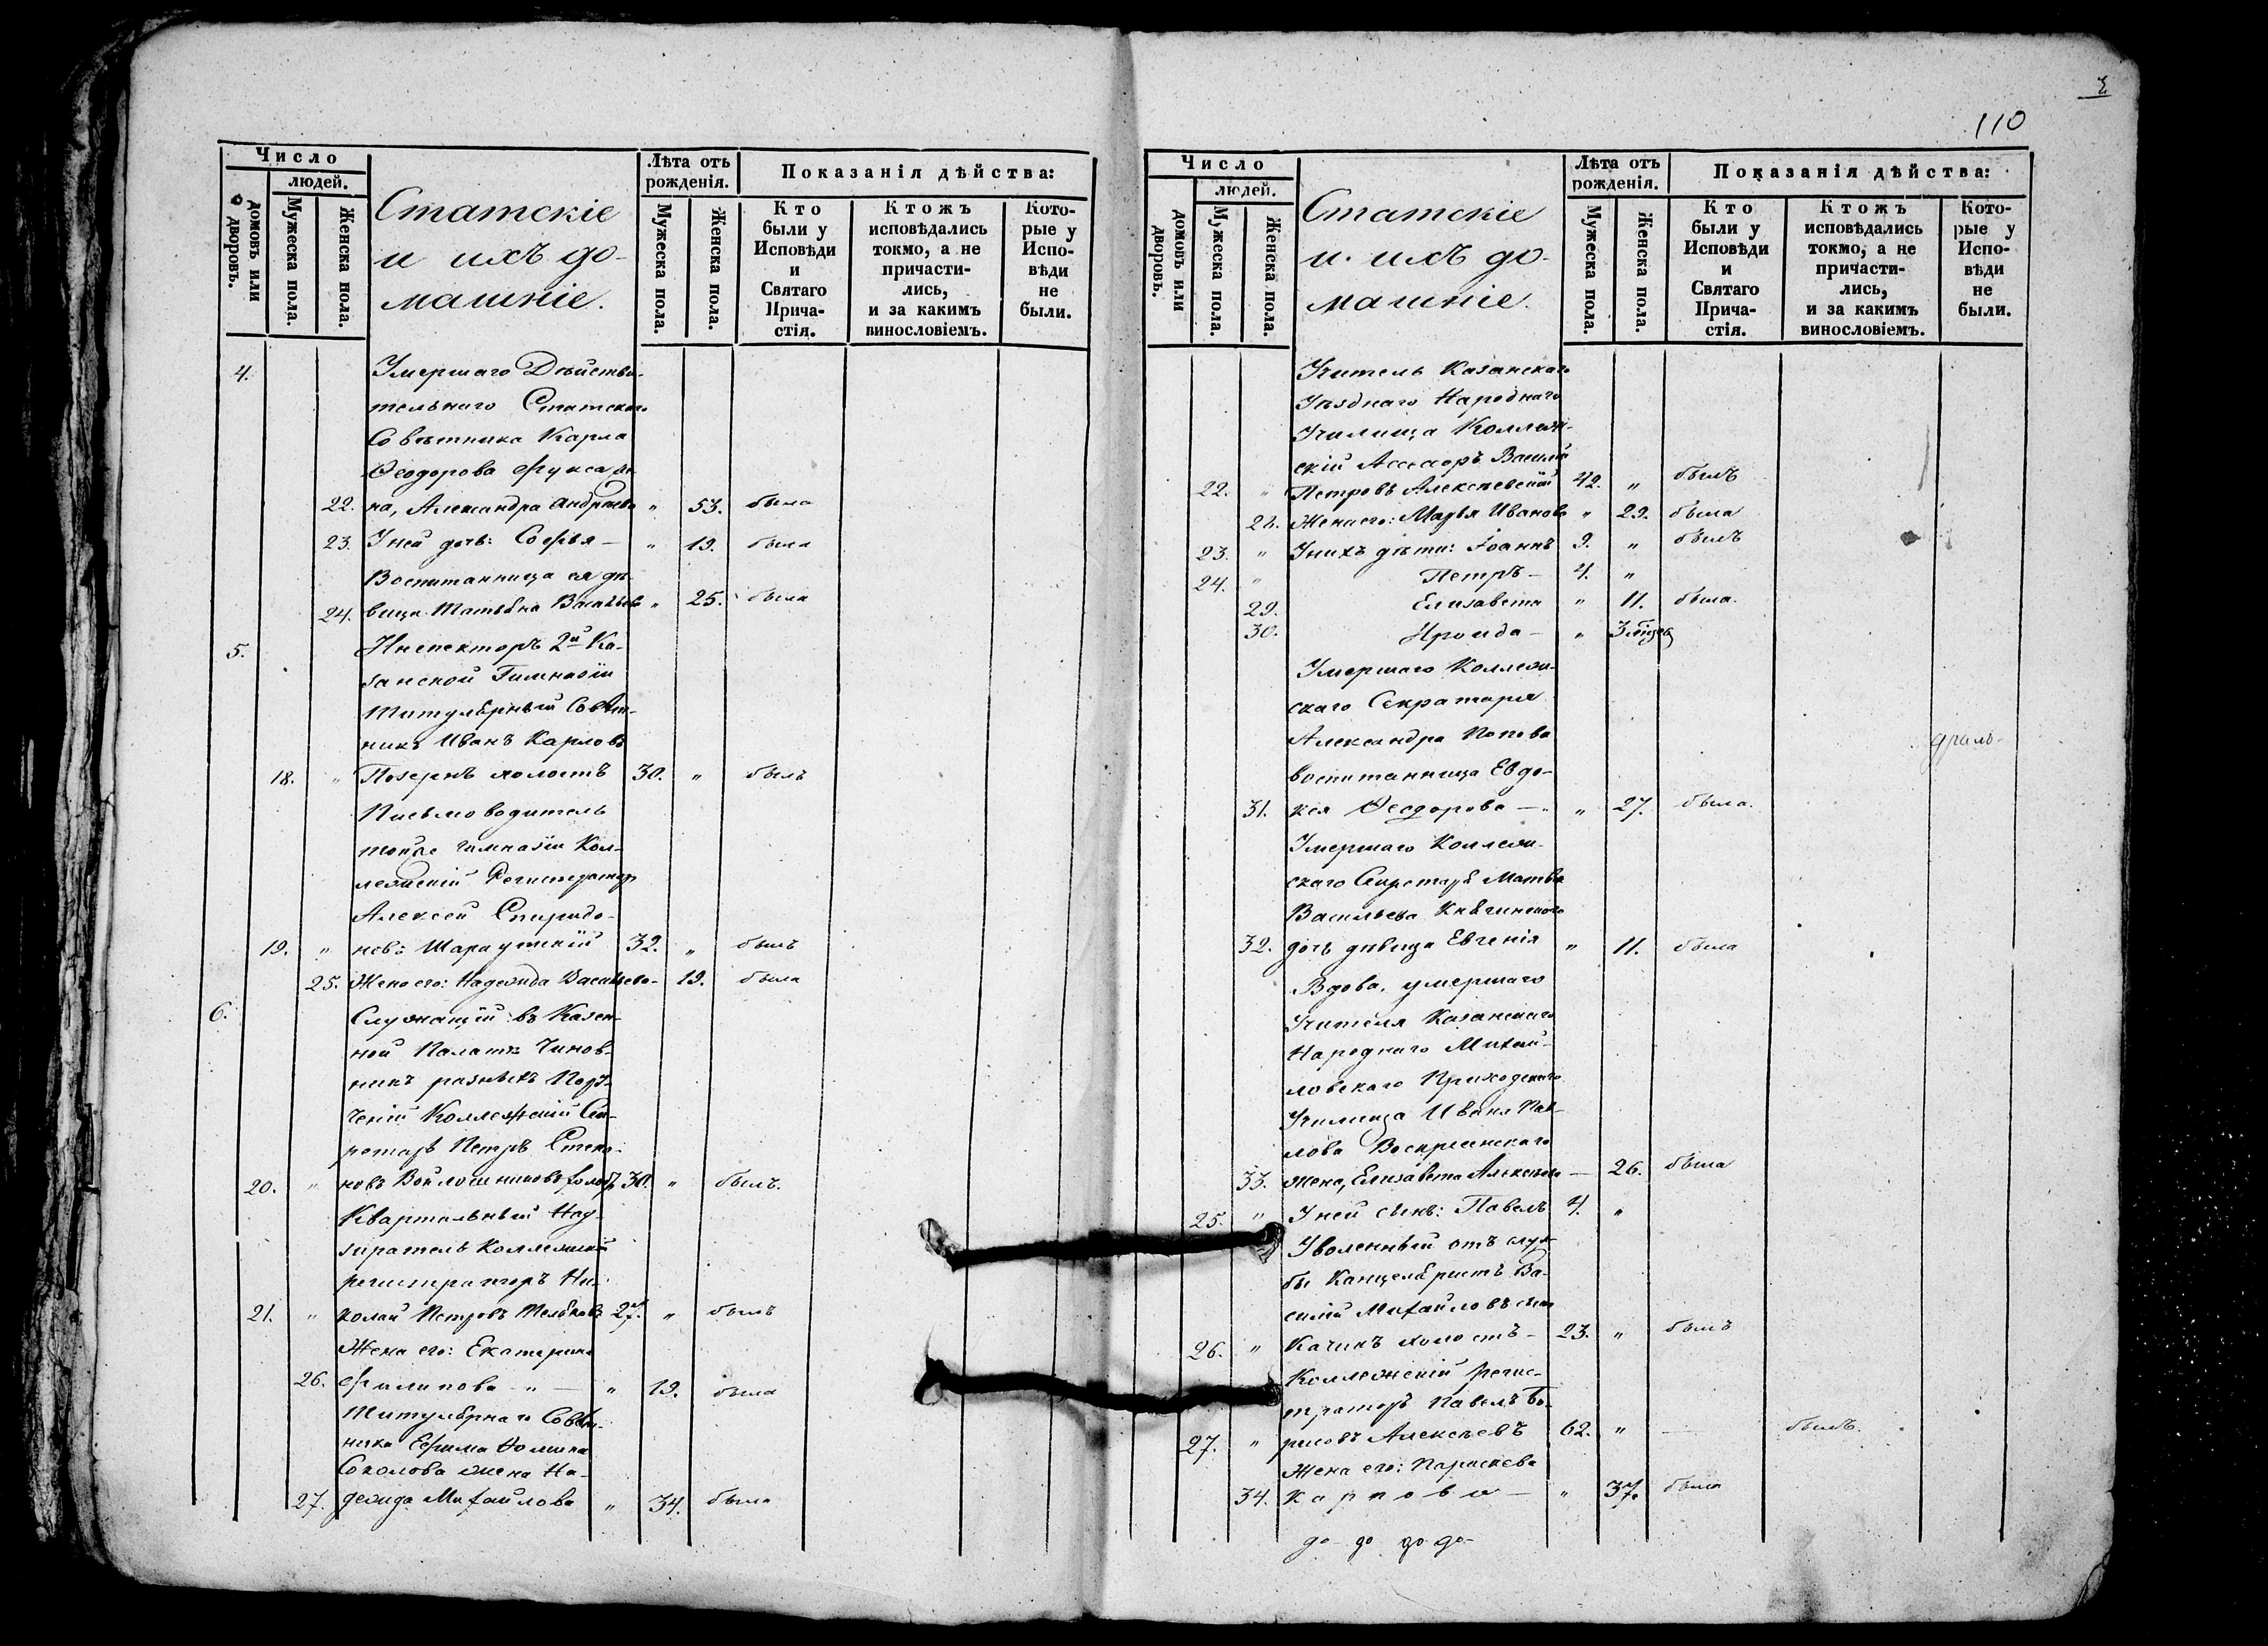 110
Число
людей.
домовъ или дворовъ.
Мужеска пола.
Женска пола.
Статскіе
и ихъ до-
машніе.
Лѣта отъ рожденія.
Мужеска пола.
Женска пола.
Показанія дѣйства:
Кто были у Исповѣди и Святаго Прича-стія.
Ктожъ исповѣдались токмо, а не причасти-лись, и за какимъ винословіемъ.
Кото-рые у Испо-вѣди не были.
4. Умершаго Дѣйстви-
тельнаго Статскаго
Совѣтника Карла
Ѳеодорова Фукса же-
22. на, Александра Андреева " 53. была
23. У ней дочь: Софья — " 19. была
Воспитанница ея дѣ-
24. вица Татьяна Васильева " 25. была
5. Инспекторъ 2й Ка-
занской Гимназіи
Титулярный Совѣт-
никъ Иванъ Карловъ
18. " Позернъ холостъ 30. " былъ
Письмоводитель
тойже гимназіи Кол-
лежскій Регистраторъ
Алексей Спиридо-
19. " новъ 32. " былъ
25. Жена его: Надежда Васильева - 19. была
6. Служащій въ Казен-
ной Палатѣ Чинов-
никъ разныхъ Пору-
ченій Коллежскій Сек-
ретарь Петръ Степа-
20. " новъ Войлошниковъ 30. " былъ.
Квартальный Над-
зиратель Коллежскій
регистраторъ Ни-
21. " колай Петровъ 27. " былъ
Жена его: Екатерина
26. Филипова - " — " 19. была
Титулярнаго Совѣт-
ника Ефима
Соколова жена На-
27. дежда Михайлова " 34. была
Число
людей.
домовъ или дворовъ.
Мужеска пола.
Женска пола.
Статскіе
и ихъ до-
машніе.
Лѣта отъ рожденія.
Мужеска пола.
Женска пола.
Показанія дѣйства:
Кто были у Исповѣди и Святаго Прича-стія.
Ктожъ исповѣдались токмо, а не причасти-лись, и за какимъ винословіемъ.
Кото-рые у Испо-вѣди не были.
Учитель Казанскаго
Уѣзднаго Народнаго
Училища Коллеж-
скій Ассесоръ Василій
22. " Петровъ Алексѣевскій 42. " былъ
28. Жена его: Марья Иванова " 29. была
23. " У нихъ дѣти: Іоаннъ 9. " былъ
24. " Петръ — 4. "
29. Елизавета " 11. была.
30. Ироида — " 3
Умершаго Коллеж-
скаго Секратаря
Александра Попова
воспитанница Евдо-
31. кея Ѳеодорова — " 27. была.
Умершаго Коллеж-
скаго Секретаря Матвѣя
Васильева
32. дочь дѣвица Евгенія " 11. была
Вдова, умершаго
Учителя Казанскаго
Народнаго Михай-
ловскаго Приходскаго
Училища Ивана Пав-
лова Воскресенскаго
33. жена, Елизавета Алексѣева — 26. была
25. " У ней сынъ: Павелъ 4. "
Уволенный отъ служ-
бы Канцеляристъ Ва-
силій Михайловъ сынъ
26. " Качинъ холостъ — 23. " былъ
Коллежскій регис-
траторъ Павелъ Бо-
27. " рисовъ Алексѣевъ 62. " — былъ.
Жена его: Параскева
34. Карпова — " 37. была
до- до до до-